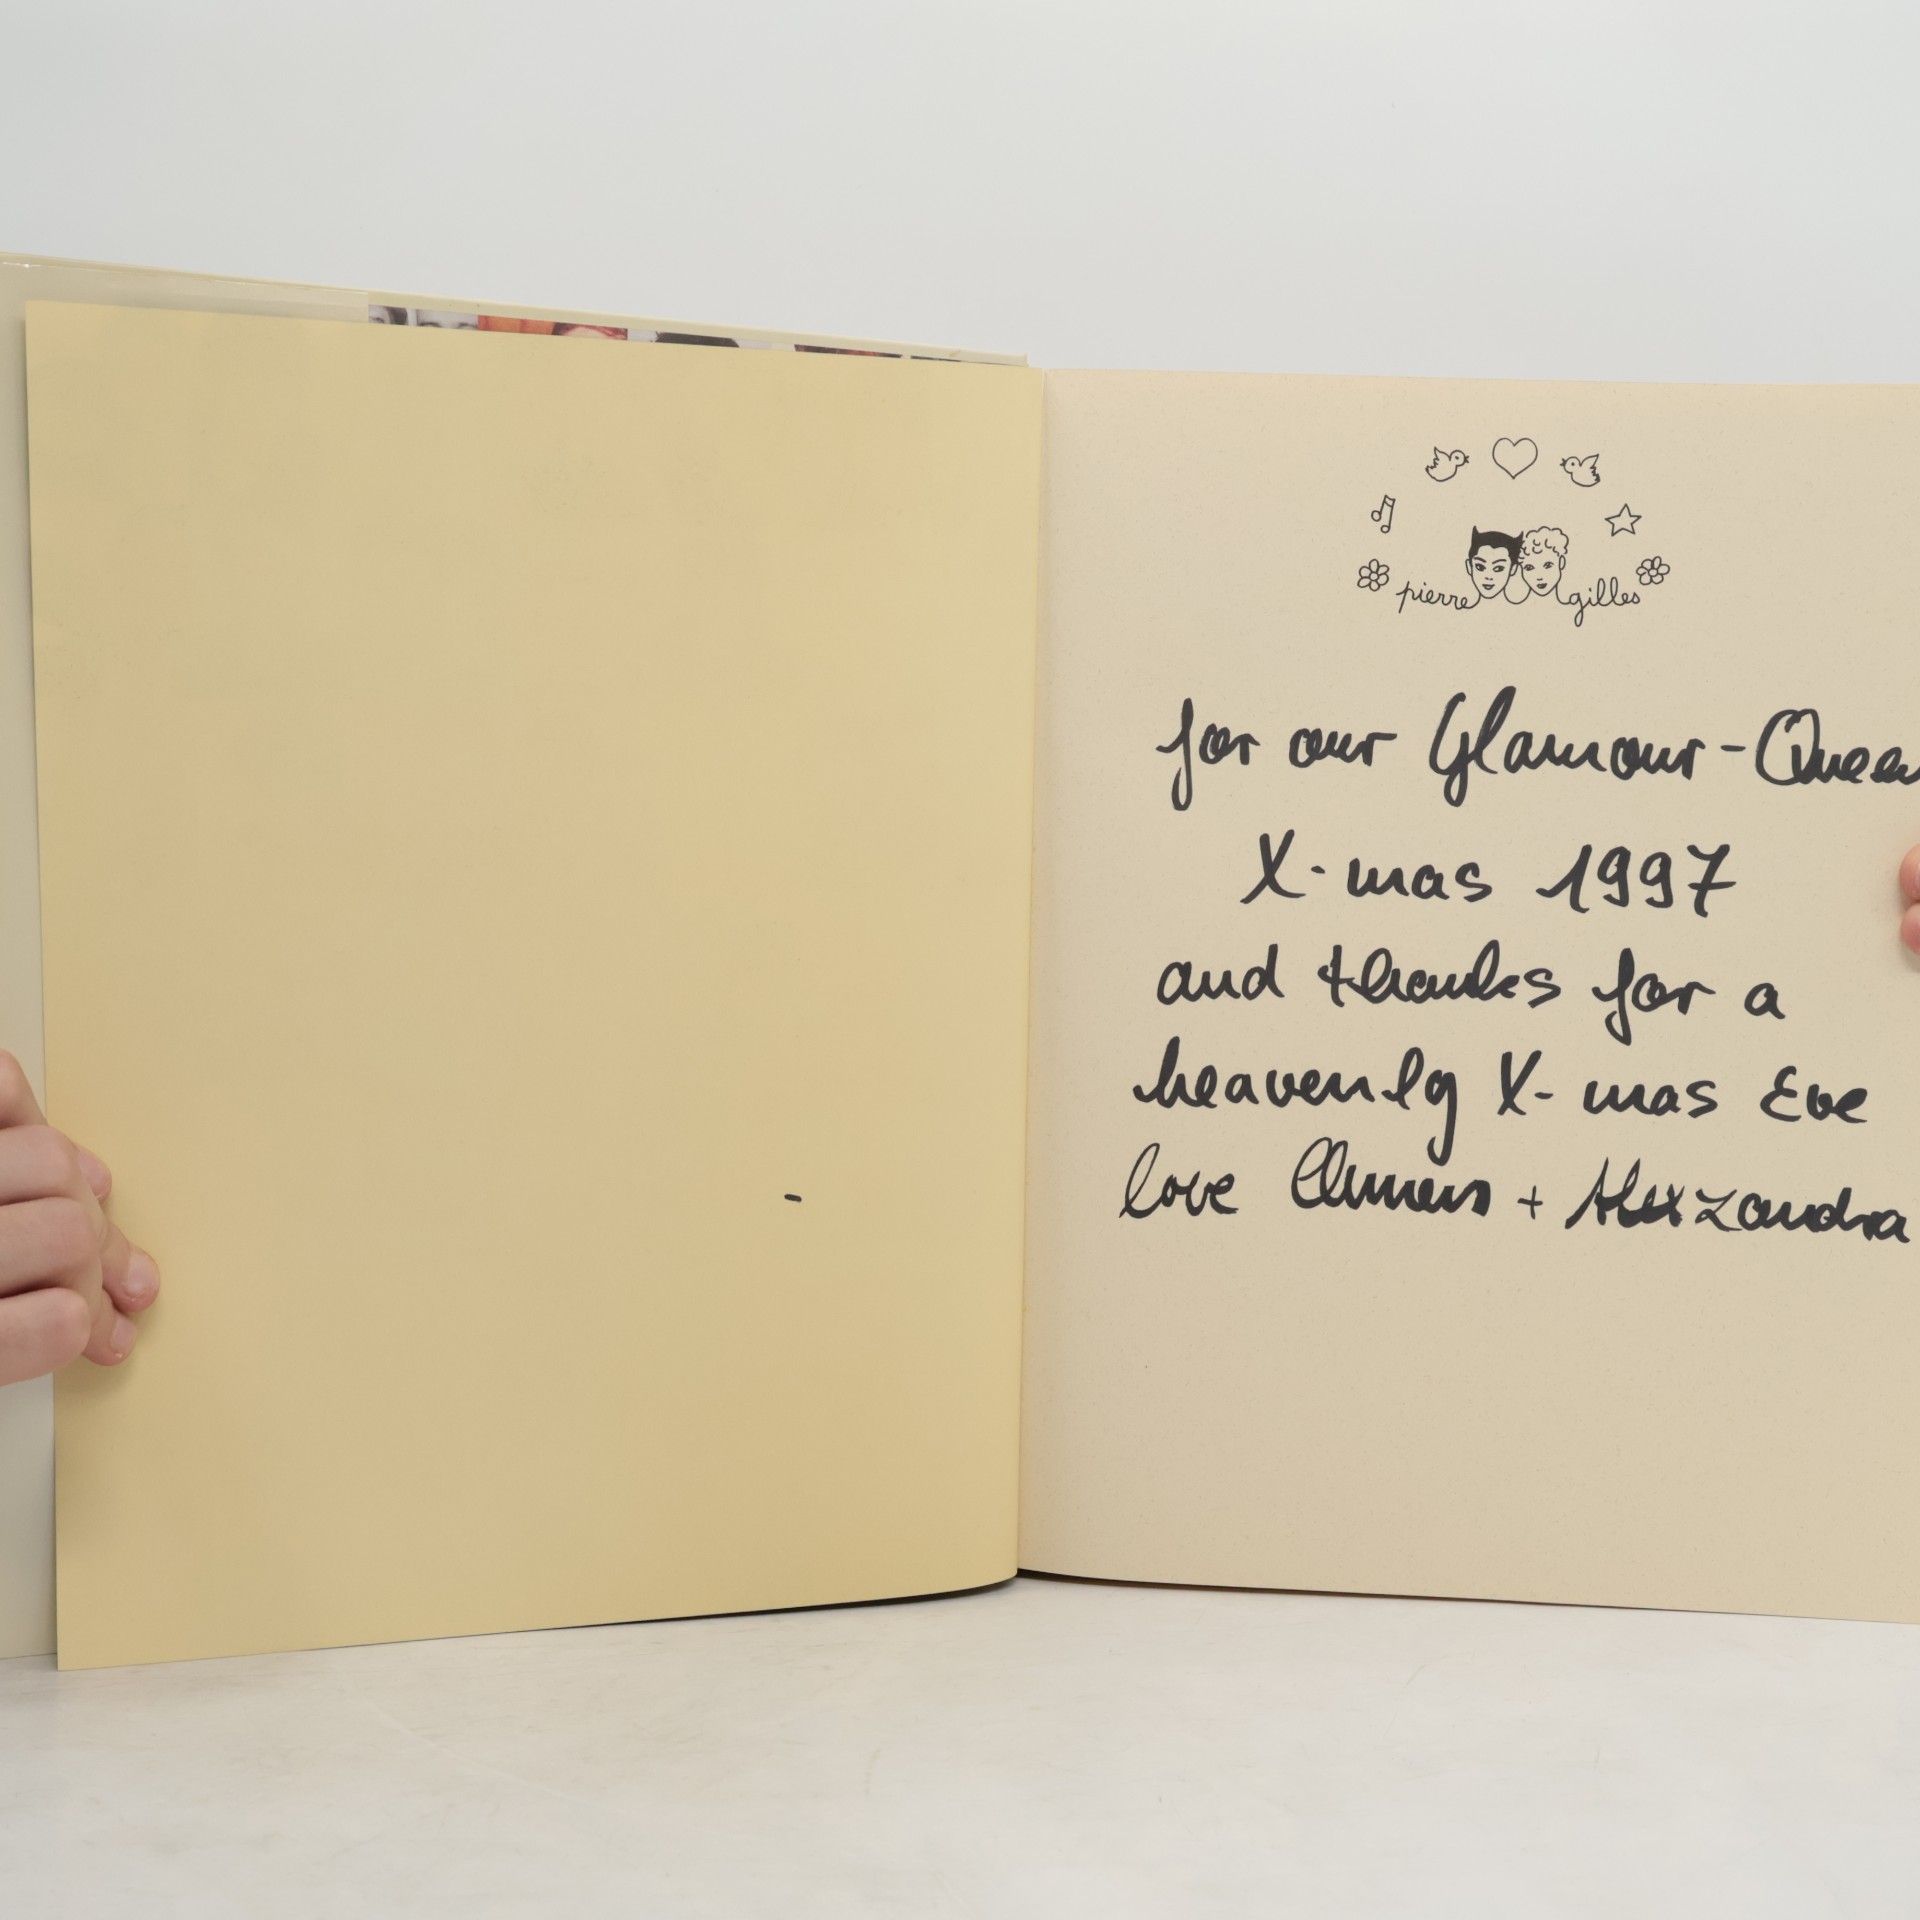 pierre gilles
for our Glamour-Queen
X-mas 1997
and thanks for a
heavenly X-mas Eve
love Clemens + Alexzandra